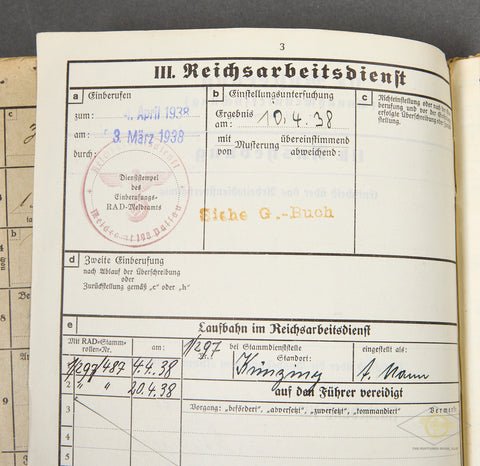 3
III. Reichsarbeitsdienst
a Einberufen
zum: 4. April 1938
am: 3. März 1938
Dienststempel
des
Einberufungs-
RAD-Meldeamts
Meldeamt 192 Passau
b Einstellungsuntersuchung
Ergebnis
am: 10.4.38
mit übereinstimmend
von Musterung abweichend:
Siehe G.-Buch
c Nichteinstellung oder nach der
erfolgte Überschreibung
stellung.
d Zweite Einberufung
nach Ablauf der Überschreibung
oder
Zurückstellung gemäß „c“ oder „h“
e Laufbahn im Reichsarbeitsdienst
Mit RAD-Stamm-
rollen-Nr.
am:
1/297 bei Stammdienststelle
Standort:
eingestellt als:
1 1/297/487 4.4.38 Künzing A. Mann
2 " " 20.4.38 auf den Führer vereidigt
3 Vorgang: „befördert“, „abgesetzt“, „zugesetzt“, „kommandiert“
4
5